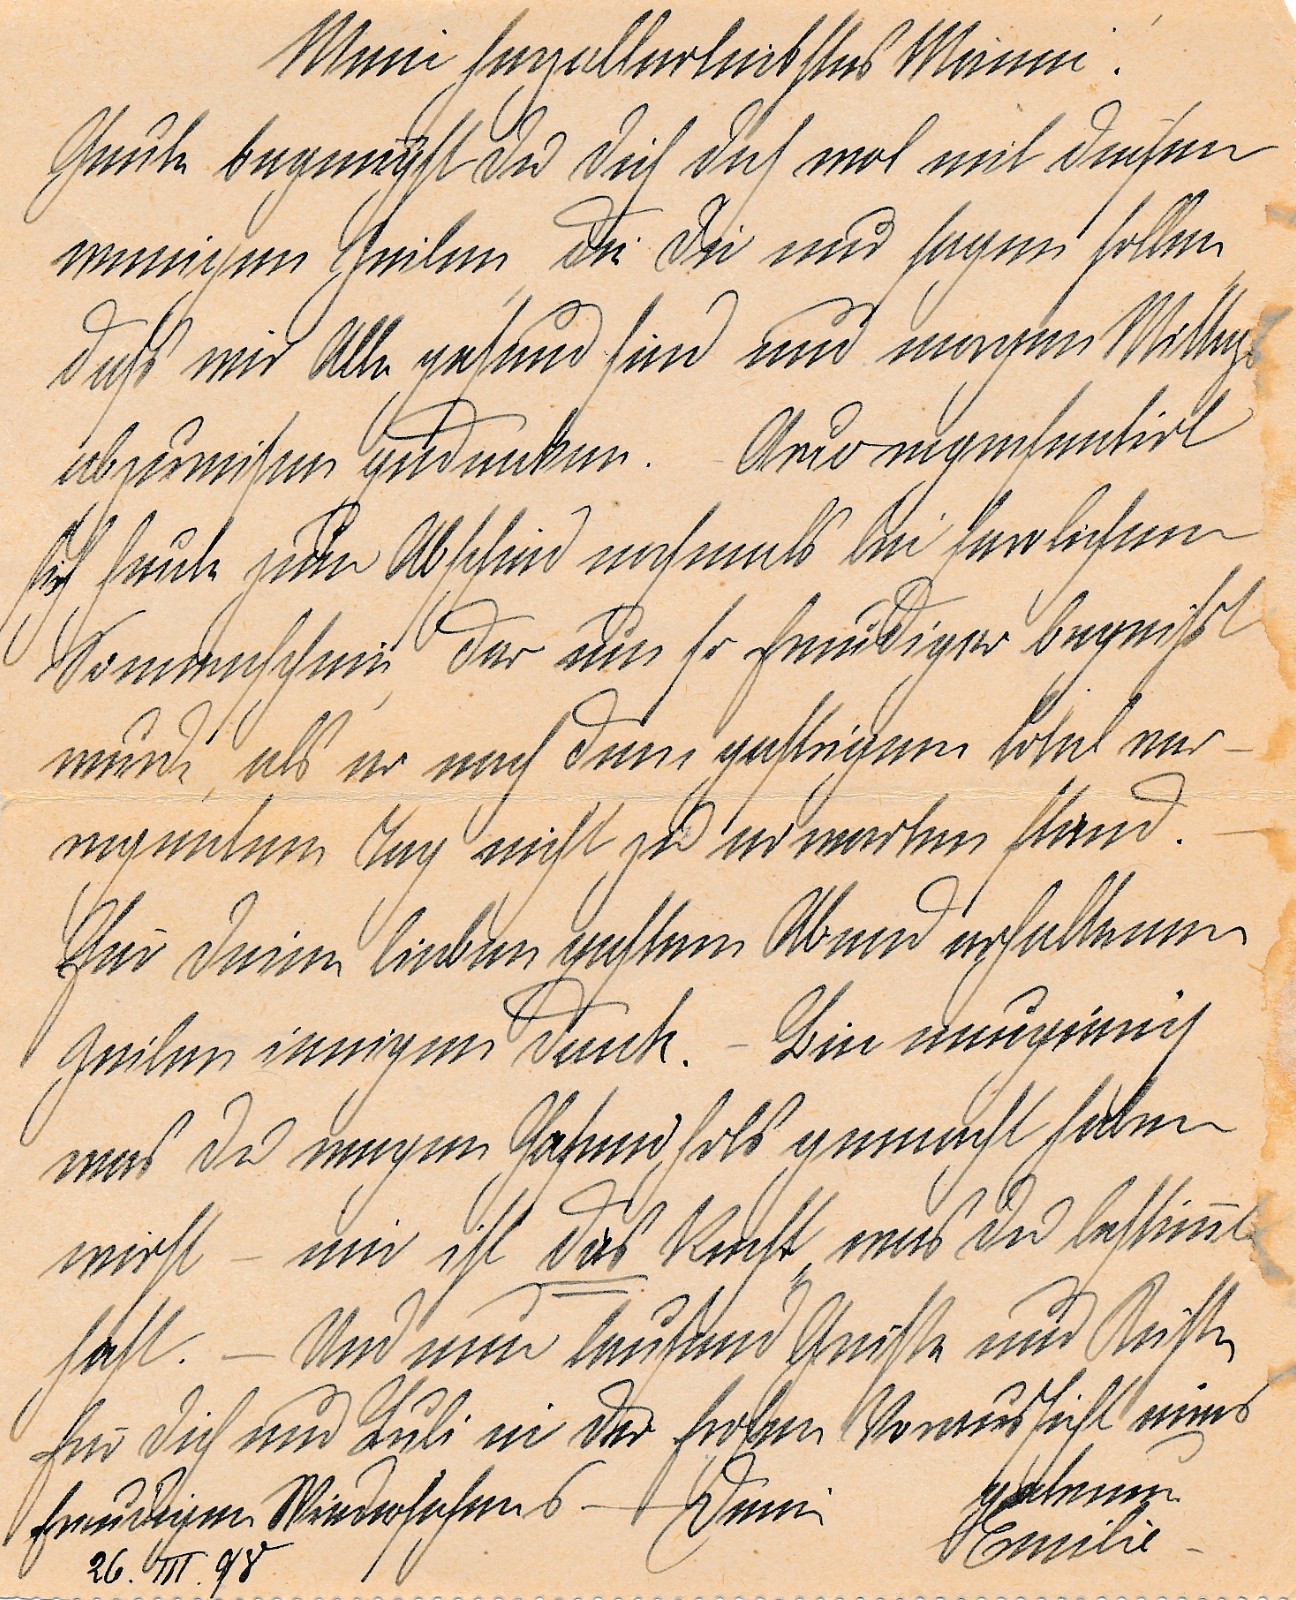 Mein herzallerliebstes Männi!
Heute begnügst Du Dich doch mal mit diesen
wenigen Zeilen, die Dir nur sagen sollen,
dass wir Alle gesund sind und morgen Mittags
abzureisen gedenken. – Arco repräsentirt
sich heute zum Abschied nochmals bei herrlichem
Sonnenschein, der um so freudiger begrüßt
wurde, als er nach dem gestrigen total ver-
regneten Tag nicht zu erwarten stand. –
Für Deine lieben gestern Abend erhaltenen
Zeilen innigen Dank. – Bin neugierig
was Du wegen gemacht haben
wirst – mir ist das Recht, was Du bestimmt
hast. – Und nun tausend Grüße und Küsse
für Dich und Luli in der frohen Voraussicht eines
freudigen Wiedersehens – Deine
Emilie –
26. III. 98